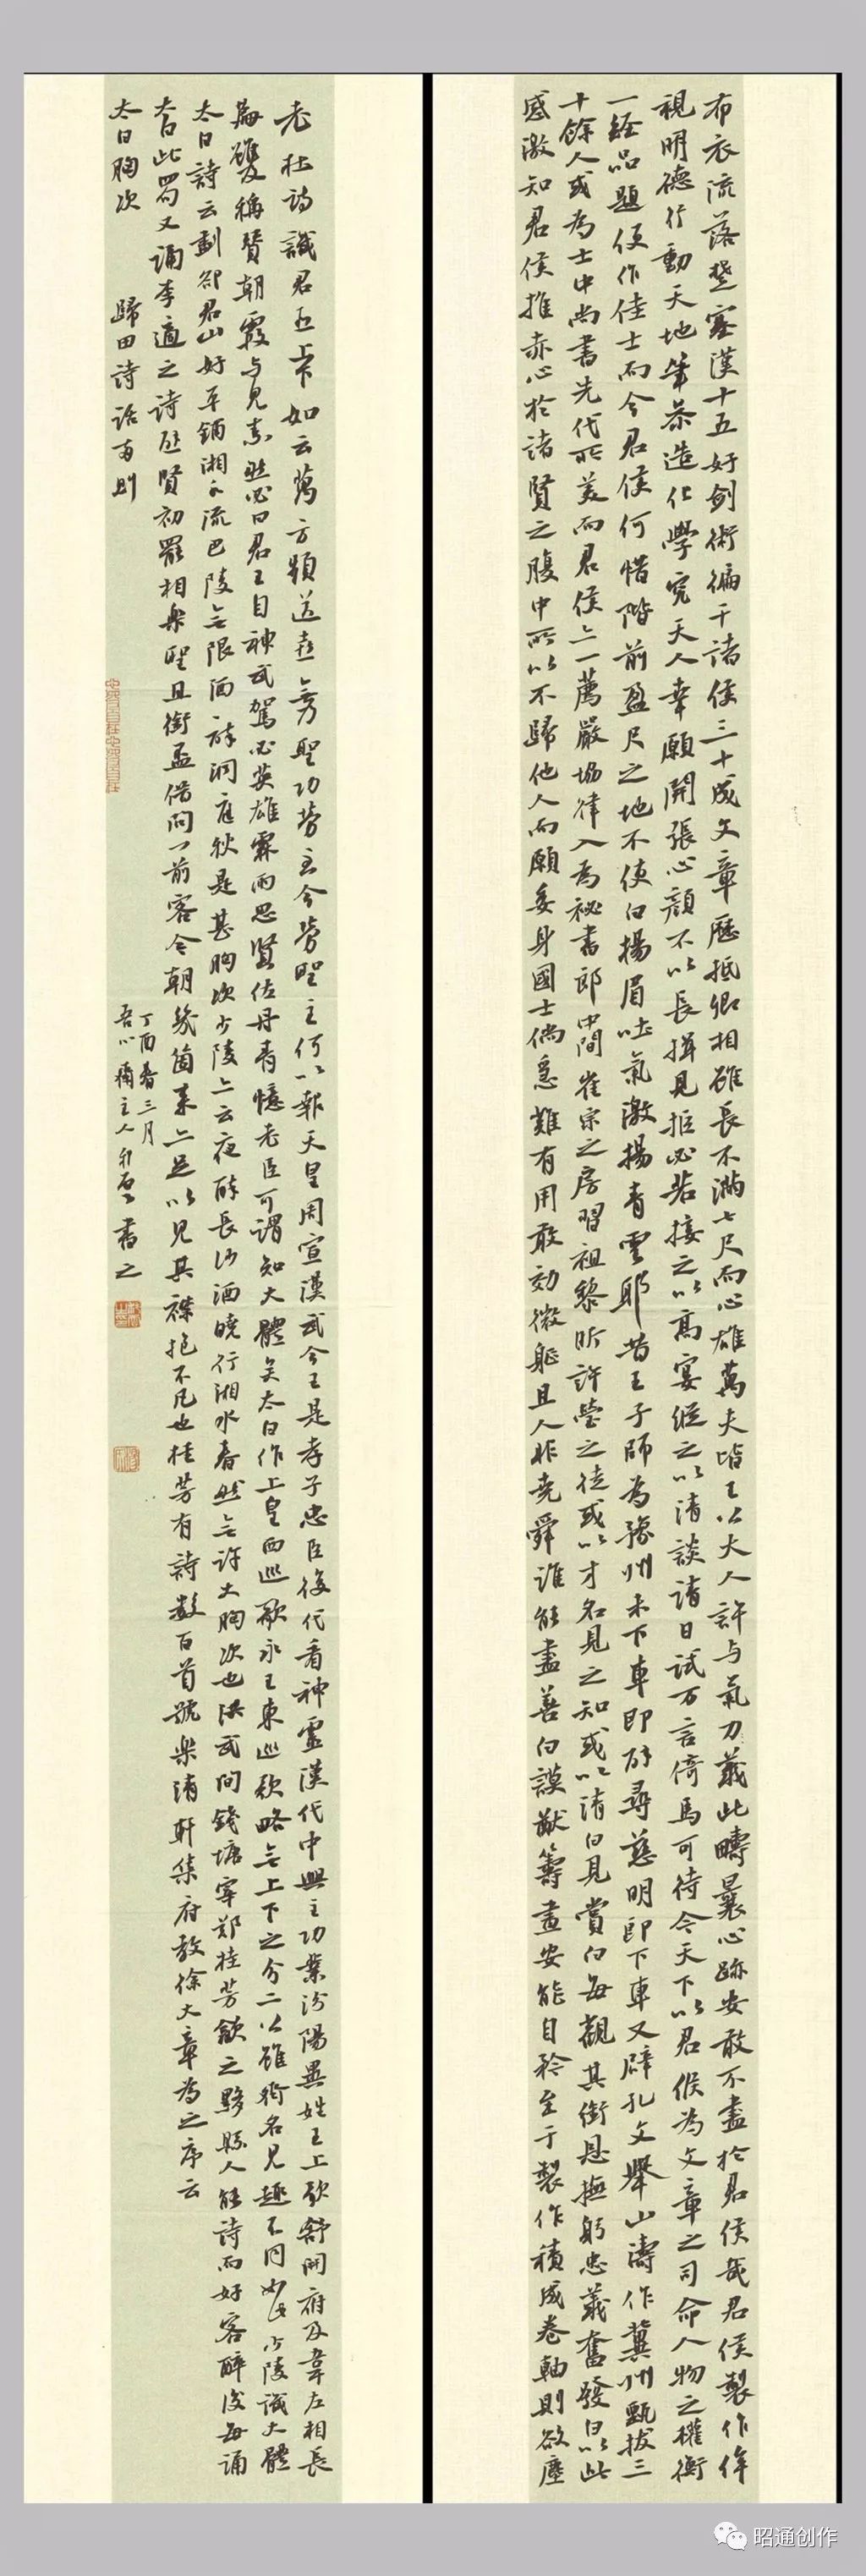 布衣流落楚塞漢十五好劍術徧干諸侯三十成文章歷抵卿相雖長不滿七尺而心雄萬夫皆王公大人許与氣刀義此疇曩心跡安敢不盡於君侯哉君侯製作侔
視明德行動天地筆參造化學究天人幸願開張心顏不以長揖見拒必若接之以高宴縱之以清談請日試万言倚馬可待今天下以君候為文章之司命人物之權衡
一經品題便作佳士而今君侯何惜階前盈尺之地不使白揚眉吐氣激揚青雲耶昔王子師為豫州未下車即辟尋慈明即下車又辟孔文舉山濤作冀州甄拔三
十餘人或為士中尚書先代所美而君侯亦一薦嚴協律入為祕書郎中間崔宗之房習祖黎昕許瑩之徒或以才名見之知或以清白見賞白每觀其銜恩撫躬忠義奮發白以此
感激知君侯推赤心於諸賢之腹中所以不歸他人而願委身國士倘急難有用敢効微軀且人非堯舜誰能盡善白謨猷籌畫安能自矜至于製作積成卷軸則欲塵
老杜詩識君臣上下如云萬方頻送喜無乃聖功勞至今勞聖主何以報天皇周宣漢武今王是孝子忠臣後代看神靈漢代中興主功業汾陽異姓王上歌舒開府及韋左相長
篇雖稱贊朝霞与見素然必曰君王自神武駕必英雄霖雨思賢佐丹青憶老臣可謂知大體矣太白作上皇西巡歌永王東巡歌略無上下之分二公雖齊名見趣不同如此少陵識大體
太白詩云剗却君山好平鋪湘水流巴陵無限酒醉洞庭秋是甚胸次少陵亦云夜醉長沙酒曉行湘水春然無許大胸次也洪武間錢塘宰鄭桂芳歙之黟縣人能詩而好客醉後每誦
太白此句又誦李適之詩避賢初罷相樂聖且銜盃借問一前客今朝幾箇來亦足以見其襟抱不凡也桂芳有詩数百首號樂清軒集府教徐大章為之序云
太白胸次 歸田詩話两則
丁酉春三月
吾心主人書之
昭通创作